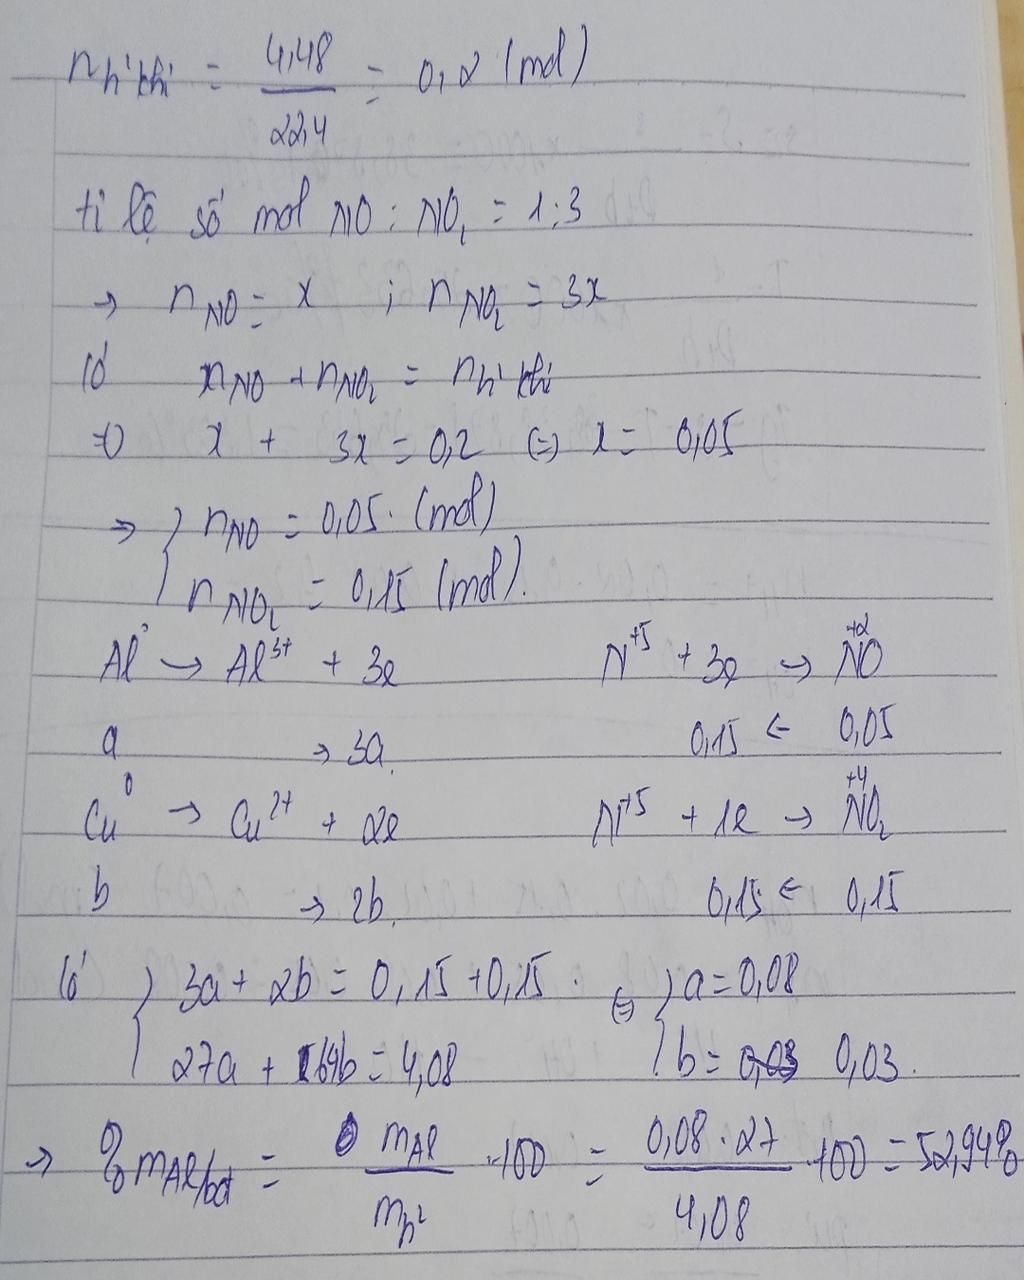 n h² khí = 4,48 / 22,4 = 0,2 (mol)
tỉ lệ số mol NO : NO₂ = 1:3
→ nNO = x ; nNO₂ = 3x
Có nNO + nNO₂ = n h² khí
⇒ x + 3x = 0,2 (=) x = 0,05
⇒ { nNO = 0,05. (mol)
nNO₂ = 0,15 (mol).
Al⁰ → Al³⁺ + 3e N⁺⁵ + 3e → N⁺²O
a → 3a 0,15 ← 0,05
Cu⁰ → Cu²⁺ + 2e N⁺⁵ + 1e → N⁺⁴O₂
b → 2b 0,15 ← 0,15
Có { 3a + 2b = 0,15 + 0,15. (=) { a = 0,08
27a + 64b = 4,08 b = 0,03 0,03.
→ % mAl/bđ = mAl / m h² . 100 = 0,08 . 27 / 4,08 . 100 = 52,94%